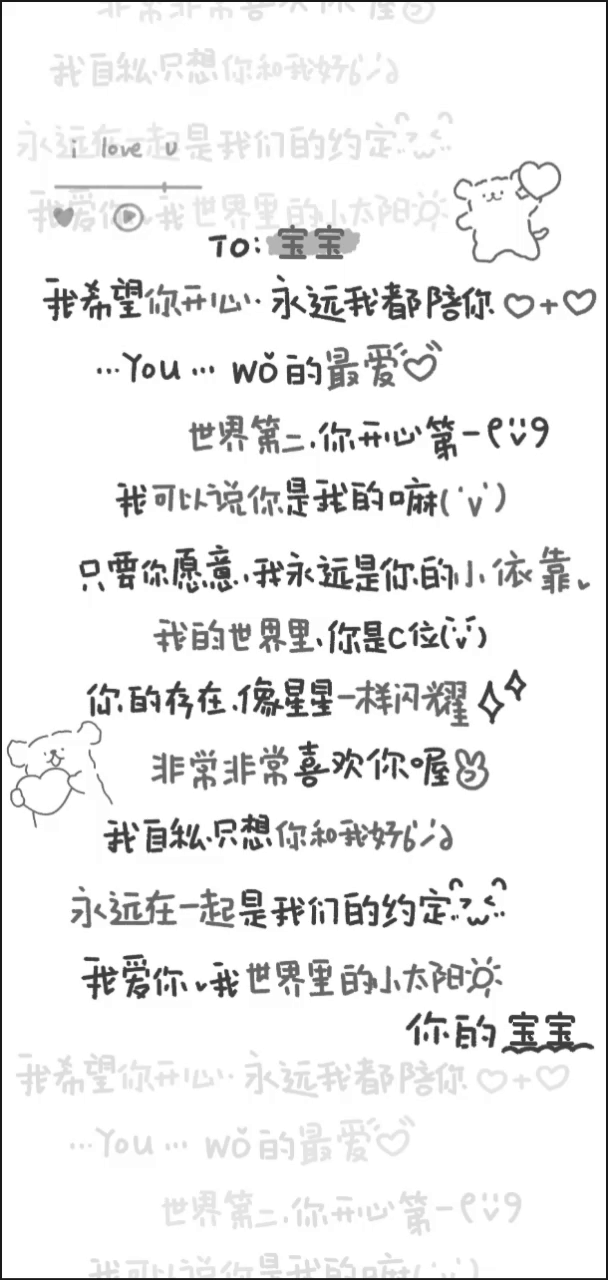 非常非常喜欢你喔
我自私只想你和我好
永远在一起是我们的约定
i love u
我爱你、我世界里的小太阳
TO: 宝宝
我希望你开心··永远我都陪你♡+♡
…You… wǒ的最爱♡
世界第二、你开心第一
我可以说你是我的嘛(ˊvˋ)
只要你愿意、我永远是你的小依靠、
我的世界里、你是C位
你的存在、像星星一样闪耀
非常非常喜欢你喔
我自私、只想你和我好
永远在一起是我们的约定
我爱你、我世界里的小太阳
你的宝宝
我希望你开心··永远我都陪你♡+♡
…You… wǒ的最爱♡
世界第二、你开心第一
我可以说你是我的嘛(ˊvˋ)